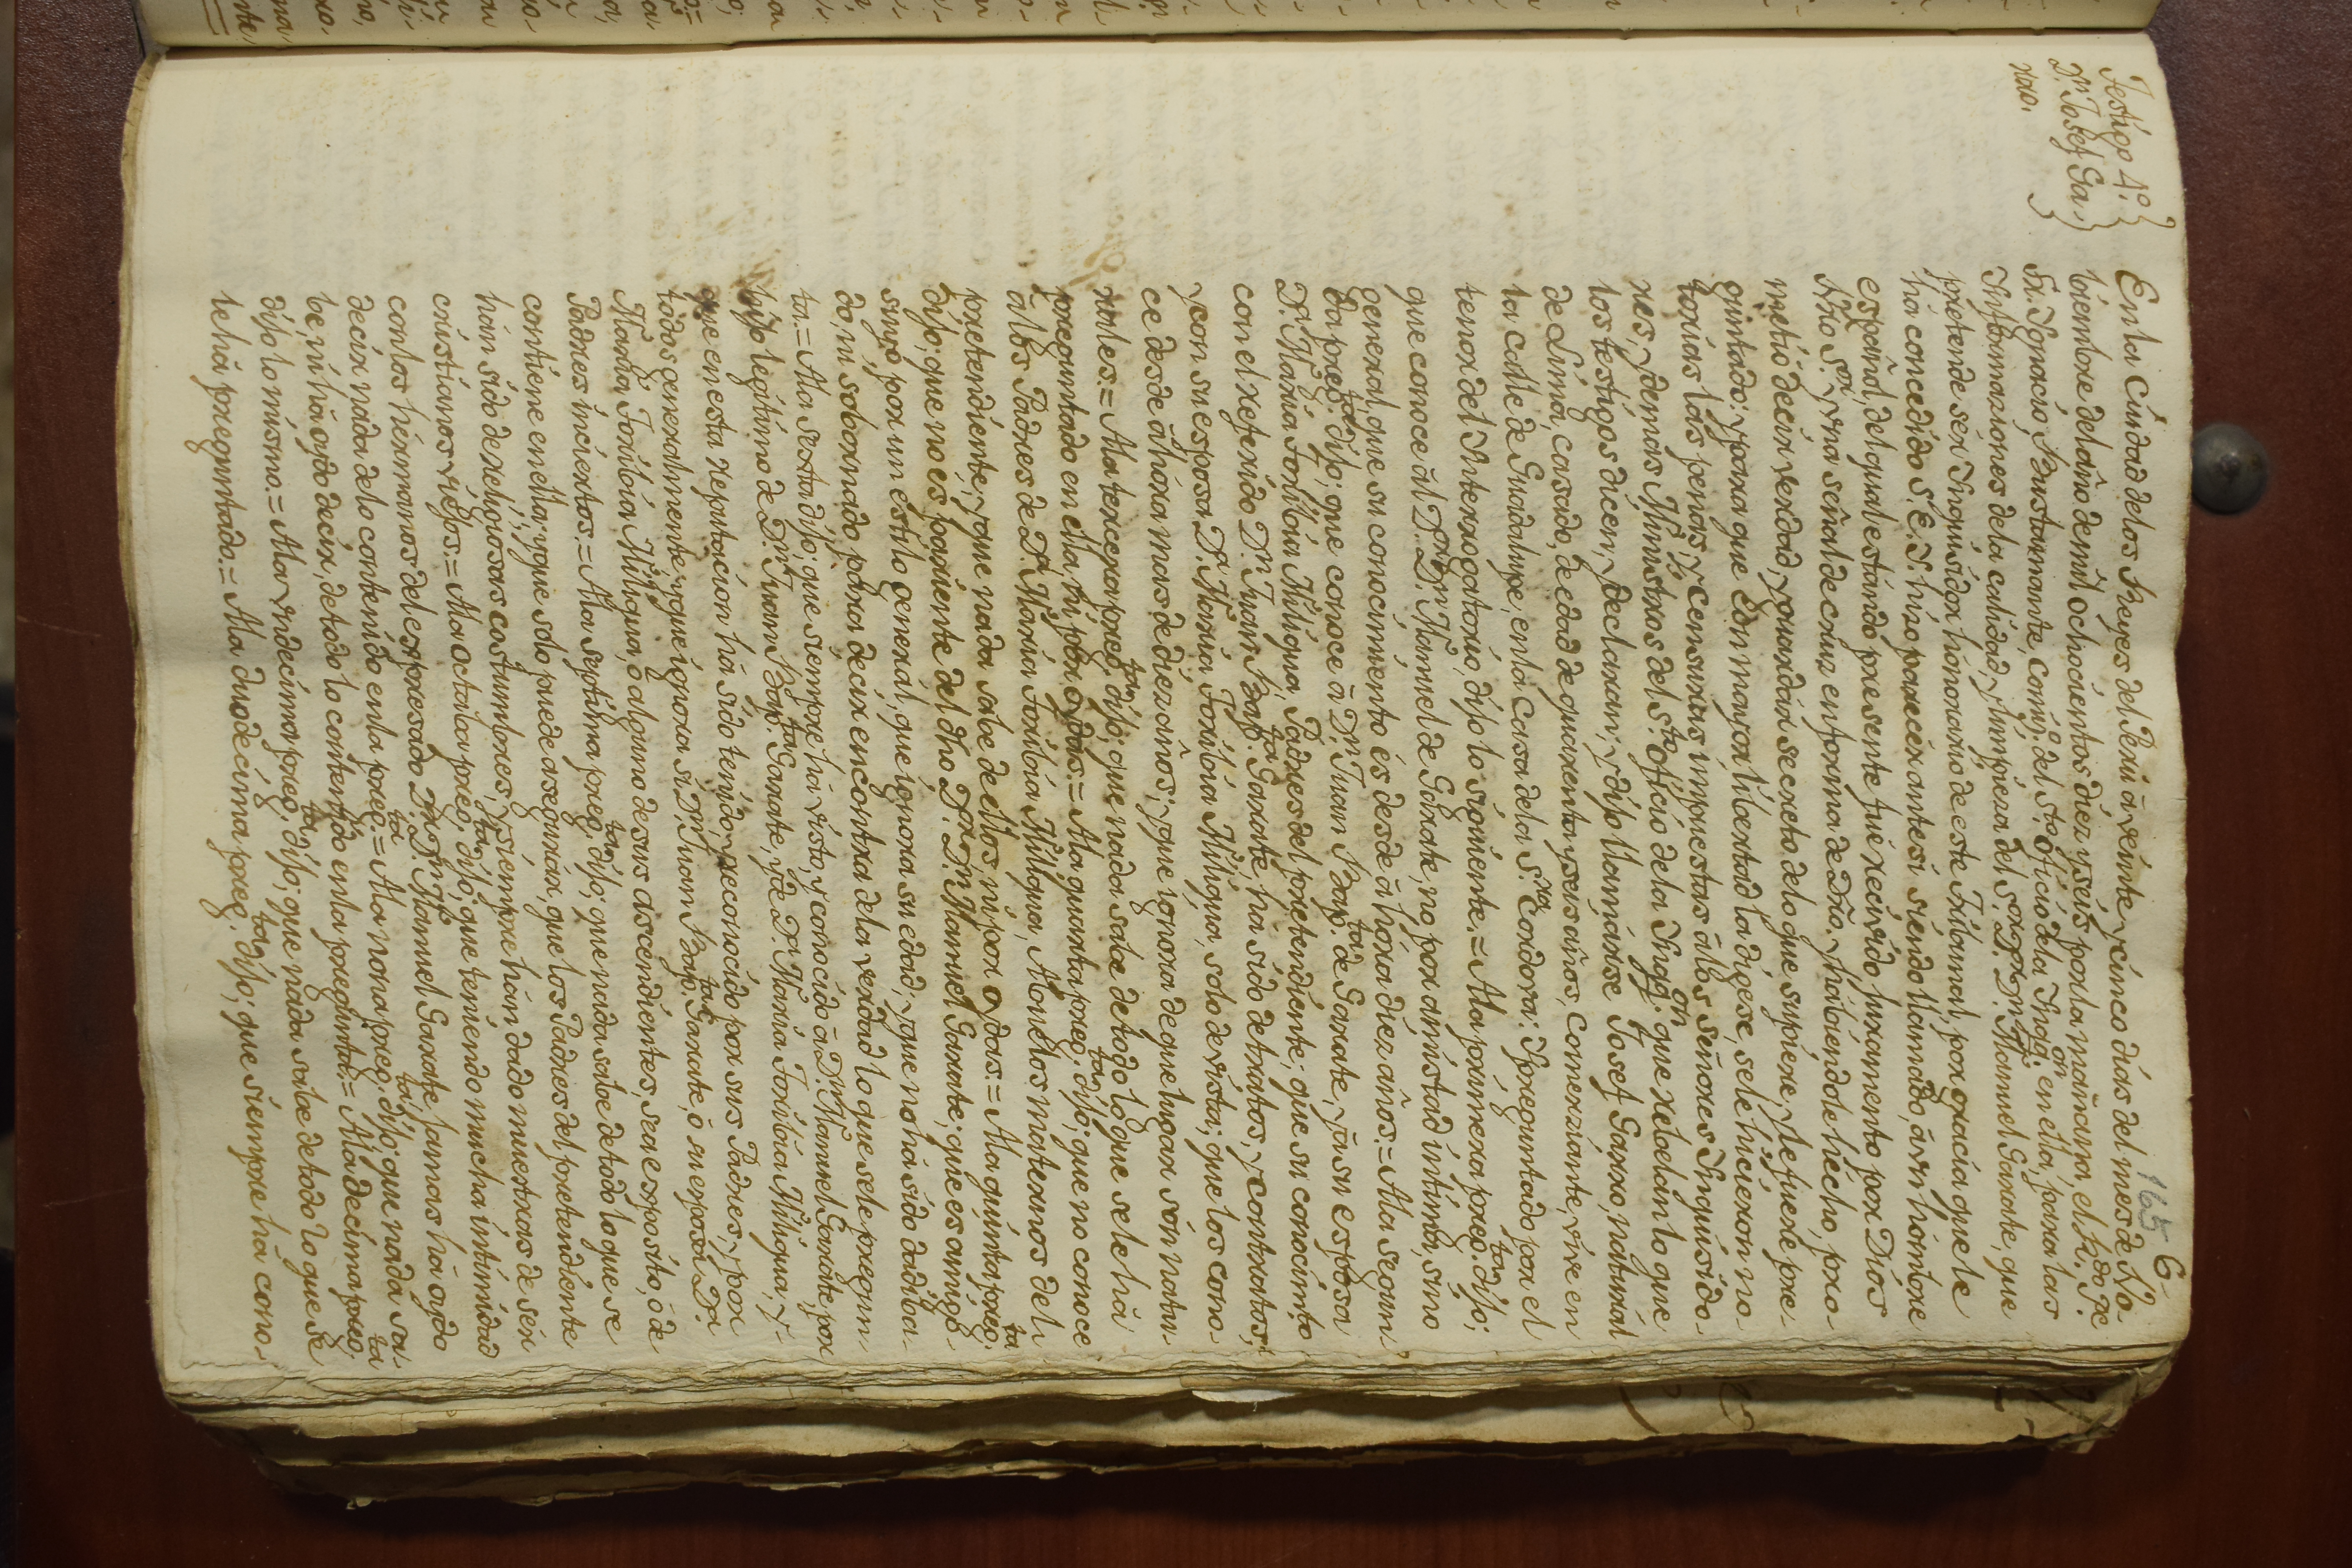 165 6
Testigo 4º.
Dn. Josef Ga-
rro.
En la Ciudad de los Reyes del Perú â veinte y cinco dias del mes de No-
biembre del año de mil ochocientos diez y seis por la mañana el R. do Pe
Fr. Ignacio Bustamante, Comis.º del Sto. Oficio de la Inqq.on en ella, para las
Informaziones de la calidad, y limpieza del S.or D.or D.n Manuel Garate, que
pretende ser Inquisidor honorario de este Tribunal por gracia que le
ha concedido S. E. I. hizo parecer ante sí siendo llamado, â un hombre
español, del qual estando presente fué recivido juramento por Dios
Ntro S.or, y una señal de cruz en forma de Dro. y habiendole hecho, pro-
metió decir verdad, y guardar secreto de lo que supiere, y le fuere pre-
guntado: y para que con mayor libertad la digese, se le hicieron no-
torias las penas, y censuras impuestas â los señores Inquisido-
res, y demas Ministros del Sto. Oficio de la Inqq.on que rebelan lo que
los testigos dicen, y declaran; y dijo llamarse Josef Garro, natural
de Lima, casado, de edad de quarenta y seis años, comerziante, vive en
la calle de Guadalupe, en la casa de la S.ra Cordova: Ypreguntado por el
tenor del Interrogatorio, dijo lo siguiente.= A la primera preg.ta dijo;
que conoce âl D.or D.n Manuel de Garate, no por amistad intima, sino
general, que su conocimiento és desde âhora diez años.= A la segun-
da preg.ta dijo; que conoce â D.n Juan Bap.ta de Garate, y â su esposa
D.a Maria Toribia Miligua, Padres del pretendiente; que su conocim.to
con el referido D.n Juan Bap.ta Garate, ha sido de tratos, y contratos;
y con su esposa D.a Maria Toribia Miligua, solo de vista; que los cono-
ce desde âhora mas de diez años; y que ignora de que lugar són natu-
rales.= A la tercera preg.ta dijo; que nada sabe de todo lo que se le há
preguntado en ella, ni por oydas.= A la quarta preg.ta dijo; que no conoce
â los Padres de D.a Maria Toribia Miligua, Abuelos maternos del
pretendiente; y que nada sabe de ellos, ni por oydas.= A la quinta preg.ta
dijo; que no es pariente del dho D.or D.n Manuel Garate; que es amigo
suyo, por un estilo general, que ignora su edad; y que no há sido dadiba-
do, ni sobornado para decir en contra de la verdad lo que se le pregun-
ta.= A la sesta dijo; que siempre ha visto, y conocido â D.n Manuel Garate, por
hijo legitimo de D.n Juan Bap.ta Garate, y de D.a Maria Toribia Miligua, y
que en esta reputacion há sido tenido, y reconocido por sus Padres, y por
todos generalmente; y que ignora si D.n Juan Bap.ta Garate, ó su esposa D.a
Maria Toribia Miligua, ó alguno de sus ascendientes, sea exposito, ó de
Padres inciertos.= A la septima preg.ta dijo; que nada sabe de todo lo que se
contiene en ella; y que solo puede asegurar, que los Padres del pretendiente
hán sido de religiosas costumbres, y siempre hán dado muestras de sér
cristianos viejos.= A la octaba preg.ta dijo; que teniendo mucha intimidad
con los hermanos del expresado D.or D.n Manuel Garate, jamas há oydo
decir nada de lo contenido en la preg.ta= A la nona preg.ta dijo; que nada sa-
be, ni há oydo decir, de todo lo contenido en la pregunta.= A la decima preg.ta
dijo lo mismo.= A la undecima preg.ta dijo; que nada sabe de todo lo que se
le há preguntado.= A la duodecima preg.ta dijo; que siempre há cono-